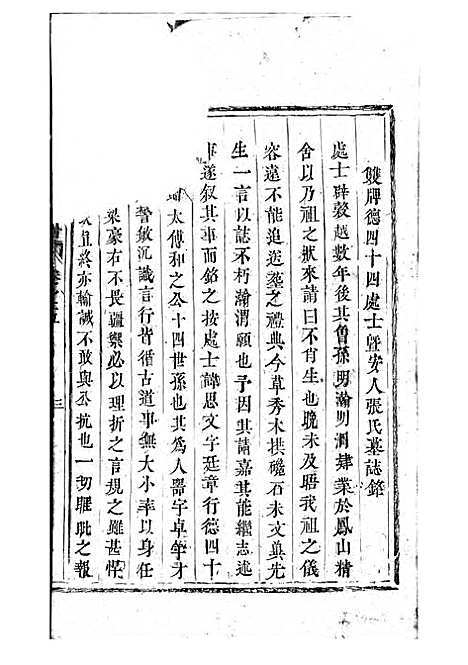 雙牌德四十四處士暨安人張氏墓誌銘
處士辟穀越數年後其曾孫明瀚明潤肄業於鳳山精
舍以乃祖之狀來請曰不肖生也晚未及晤我祖之儀
容遠不能追遊葬之禮典今草秀木拱磯石未文與先
生一言以誌不朽瀚渭願也予因其請嘉其能繼志述
事遂叙其事而銘之按處士諱思文字廷章行德四十
太傅和之公十四世孫也其為人器宇卓犖才
警敏沉識言行皆循古道事無大小率以身任
梁豪右不畏疆禦必以理折之言規之雖甚悍
且終亦輸誠不敢與公抗也一切睚眦之報
三